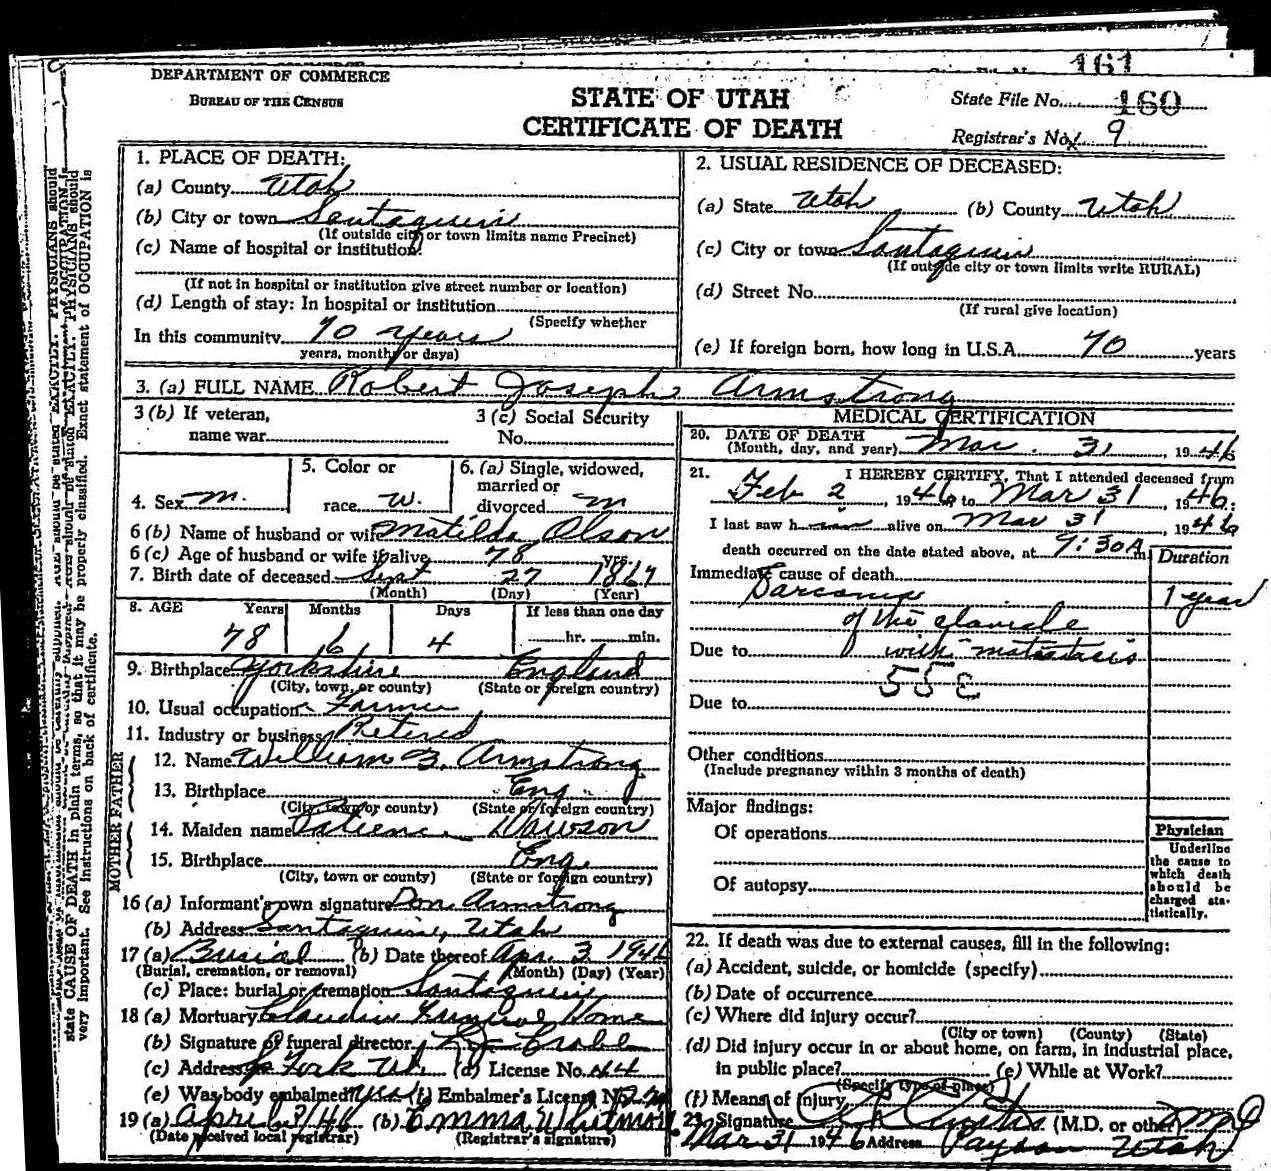 161
DEPARTMENT OF COMMERCE
BUREAU OF THE CENSUS
STATE OF UTAH
CERTIFICATE OF DEATH
State File No. 160
Registrar's No. 9
1. PLACE OF DEATH:
(a) County Utah
(b) City or town Santaquin
(If outside city or town limits name Precinct)
(c) Name of hospital or institution:
(If not in hospital or institution give street number or location)
(d) Length of stay: In hospital or institution
(Specify whether
In this community 70 years
years, months or days)
2. USUAL RESIDENCE OF DECEASED:
(a) State Utah (b) County Utah
(c) City or town Santaquin
(If outside city or town limits write RURAL)
(d) Street No.
(If rural give location)
(e) If foreign born, how long in U.S.A. 70 years
3. (a) FULL NAME Robert Joseph Armstrong
3 (b) If veteran,
name war
3 (c) Social Security
No.
4. Sex m.
5. Color or
race w.
6. (a) Single, widowed,
married or
divorced m
6 (b) Name of husband or wife Matilda Olson
6 (c) Age of husband or wife if alive 78 yrs.
7. Birth date of deceased Sept 27 1867
(Month) (Day) (Year)
8. AGE Years Months Days If less than one day
78 6 4 hr. min.
9. Birthplace Yorkshire England
(City, town, or county) (State or foreign country)
10. Usual occupation Farmer
11. Industry or business Retired
FATHER
12. Name William B. Armstrong
13. Birthplace Eng
(City, town or county) (State or foreign country)
MOTHER
14. Maiden name Patience Dawson
15. Birthplace Eng.
(City, town or county) (State or foreign country)
16 (a) Informant's own signature Don Armstrong
(b) Address Santaquin, Utah
17 (a) Burial (b) Date thereof Apr. 3 1946
(Burial, cremation, or removal) (Month) (Day) (Year)
(c) Place: burial or cremation Santaquin
18 (a) Mortuary Claudin Funeral Home
(b) Signature of funeral director
(c) Address Sp Fork Ut. (d) License No. 44
(e) Was body embalmed? Yes (f) Embalmer's License No.
19 (a) April 3/46 (b) Emma Whitmore
(Date received local registrar) (Registrar's signature)
MEDICAL CERTIFICATION
20. DATE OF DEATH
(Month, day, and year) Mar. 31, 1946
21. I HEREBY CERTIFY, That I attended deceased from
Feb 2, 1946, to Mar 31, 1946;
I last saw h im alive on Mar 31 1946
death occurred on the date stated above, at 9:30A m.
Duration
Immediate cause of death
Sarcoma 1 year
of the clavicle
Due to with metastasis
55E
Due to
Other conditions
(Include pregnancy within 3 months of death)
Major findings:
Of operations
Of autopsy
Physician
Underline
the cause to
which death
should be
charged sta-
tistically.
22. If death was due to external causes, fill in the following:
(a) Accident, suicide, or homicide (specify)
(b) Date of occurrence
(c) Where did injury occur?
(City or town) (County) (State)
(d) Did injury occur in or about home, on farm, in industrial place,
in public place? (e) While at Work?
(Specify type of place)
(f) Means of injury
23. Signature (M.D. or other) MD
Mar 31 1946 Address Payson Utah
state CAUSE OF DEATH in plain terms, so that it may be properly classified. Exact statement of OCCUPATION is
very important. See instructions on back of certificate.